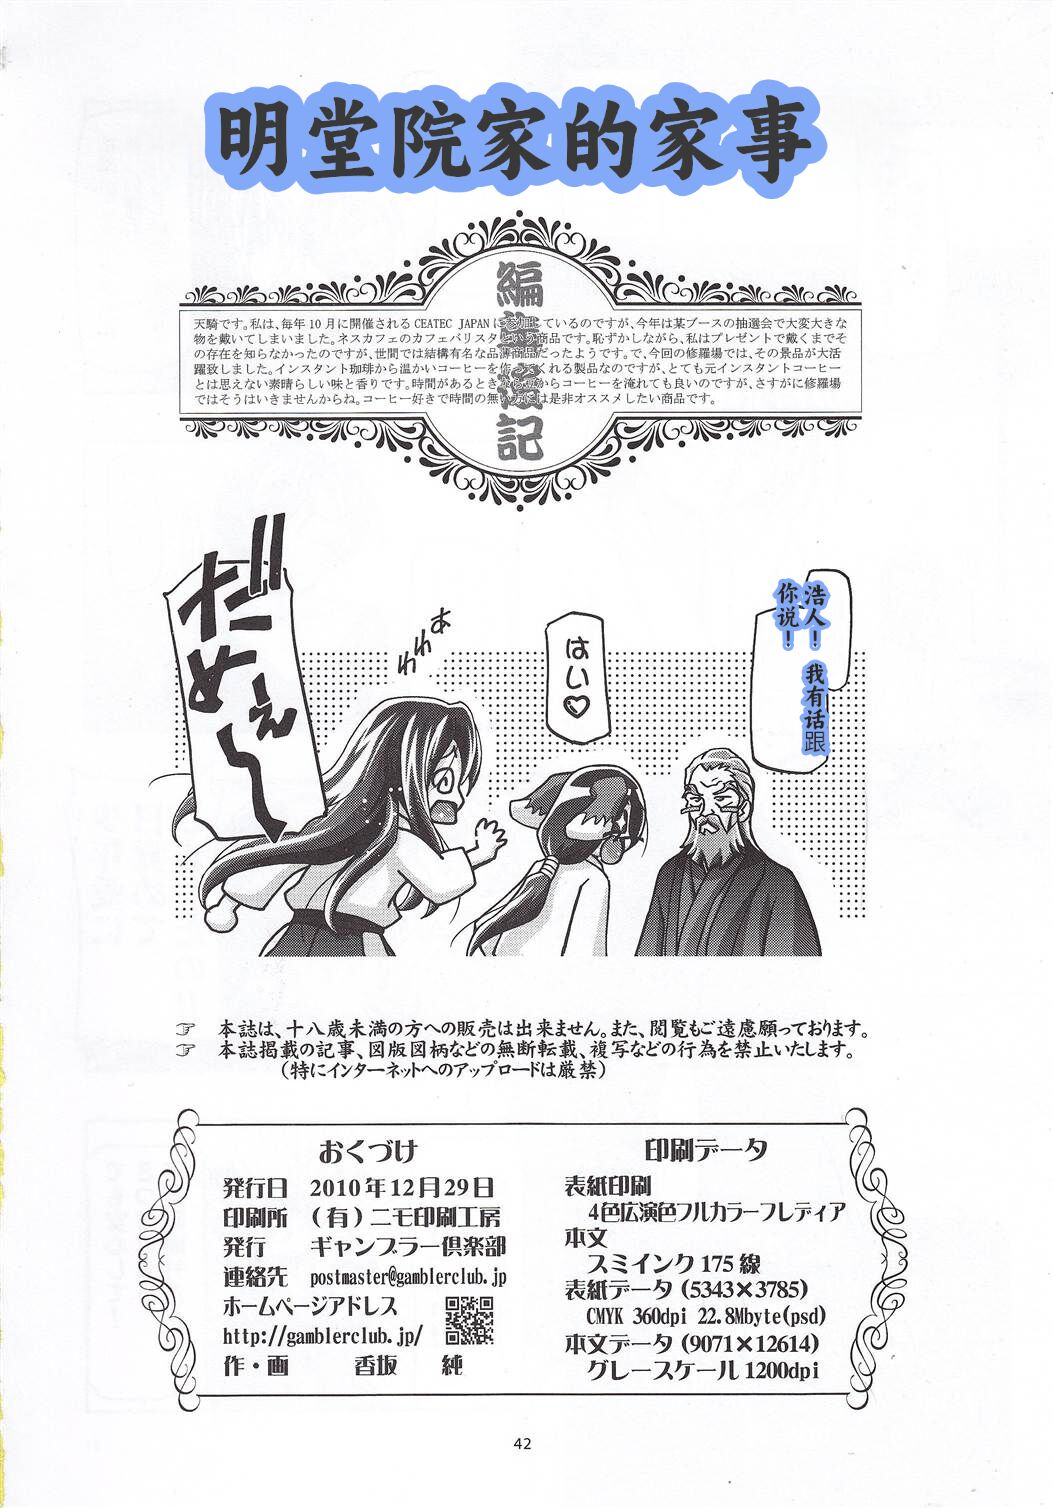 明堂院家的家事
編集後記
天騎です。私は、毎年10月に開催されるCEATEC JAPANに参加しているのですが、今年は某ブースの抽選会で大変大きな
物を戴いてしまいました。ネスカフェのカフェバリスタという商品です。恥ずかしながら、私はプレゼントで戴くまでそ
の存在を知らなかったのですが、世間では結構有名な品薄商品だったようです。で、今回の修羅場では、その景品が大活
躍致しました。インスタント珈琲から温かいコーヒーを作ってくれる製品なのですが、とても元インスタントコーヒー
とは思えない素晴らしい味と香りです。時間があるときなら豆からコーヒーを淹れても良いのですが、さすがに修羅場
ではそうはいきませんからね。コーヒー好きで時間の無い方には是非オススメしたい商品です。
浩人！ 我有话跟
你说！
はい♡
あわわ
だめぇ〜〜!!
☞ 本誌は、十八歳未満の方への販売は出来ません。また、閲覧もご遠慮願っております。
☞ 本誌掲載の記事、図版図柄などの無断転載、複写などの行為を禁止いたします。
（特にインターネットへのアップロードは厳禁）
おくづけ
発行日 2010年12月29日
印刷所 （有）ニモ印刷工房
発行 ギャンブラー倶楽部
連絡先 postmaster@gamblerclub.jp
ホームページアドレス
http://gamblerclub.jp/
作・画 香坂 純
印刷データ
表紙印刷
4色広演色フルカラーフレディア
本文
スミインク175線
表紙データ（5343×3785）
CMYK 360dpi 22.8Mbyte(psd)
本文データ（9071×12614）
グレースケール1200dpi
42